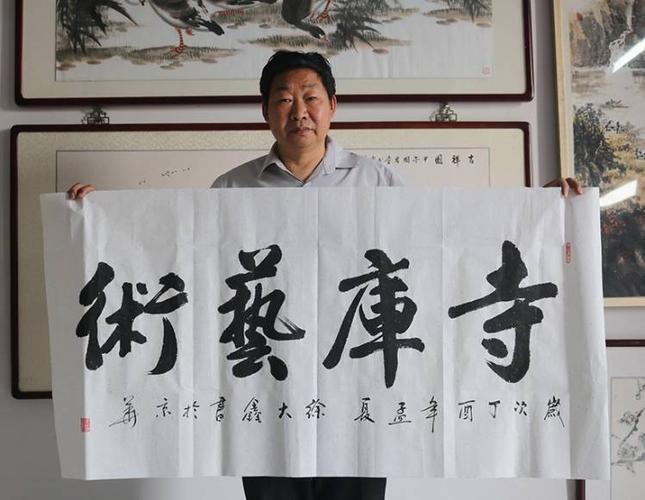 吉祥圖甲午
寺庫藝術
歲次丁酉年孟夏徐大鑫書於京華